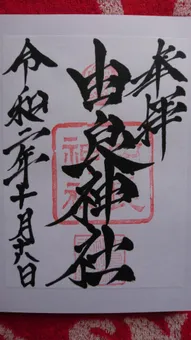 奉拝
由良神社
令和二年十一月十八日